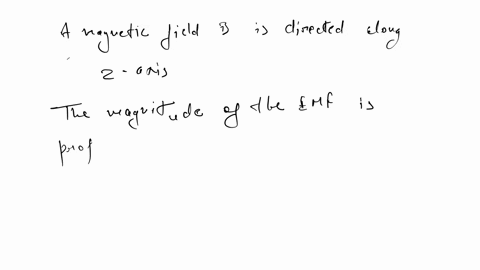 A magnetic field B is directed along
z-axis
The magnitude of the EMF is
prop